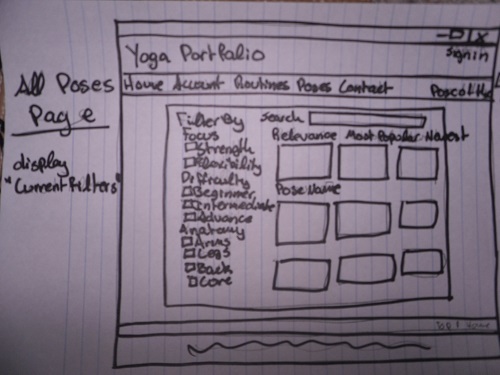 All Poses
Page
display
"Current Filters"
Yoga Portfolio
Sign in
Home Account Routines Poses Contact
Filter By
Focus
Strength
Flexibility
Difficulty
Beginner
Intermediate
Advance
Anatomy
Arms
Legs
Back
Core
Search
Relevance Most Popular Newest
Pose Name